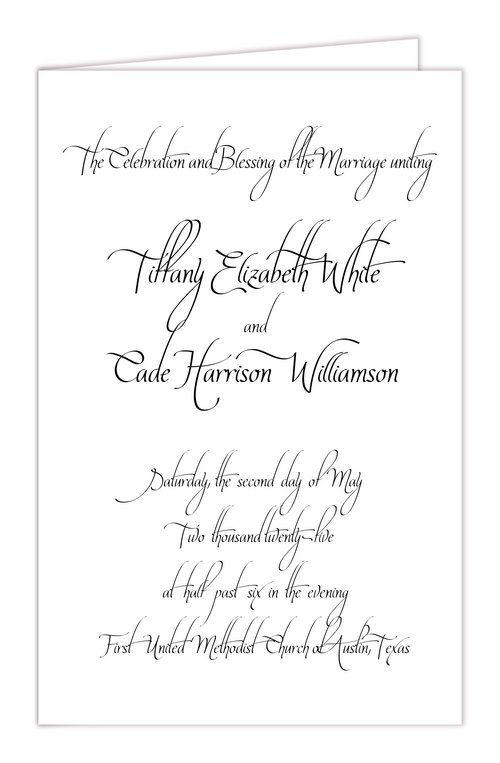 The Celebration and Blessing of the Marriage uniting
Tiffany Elizabeth White
and
Cade Harrison Williamson
Saturday, the second day of May
Two thousand twenty-five
at half past six in the evening
First United Methodist Church of Austin, Texas